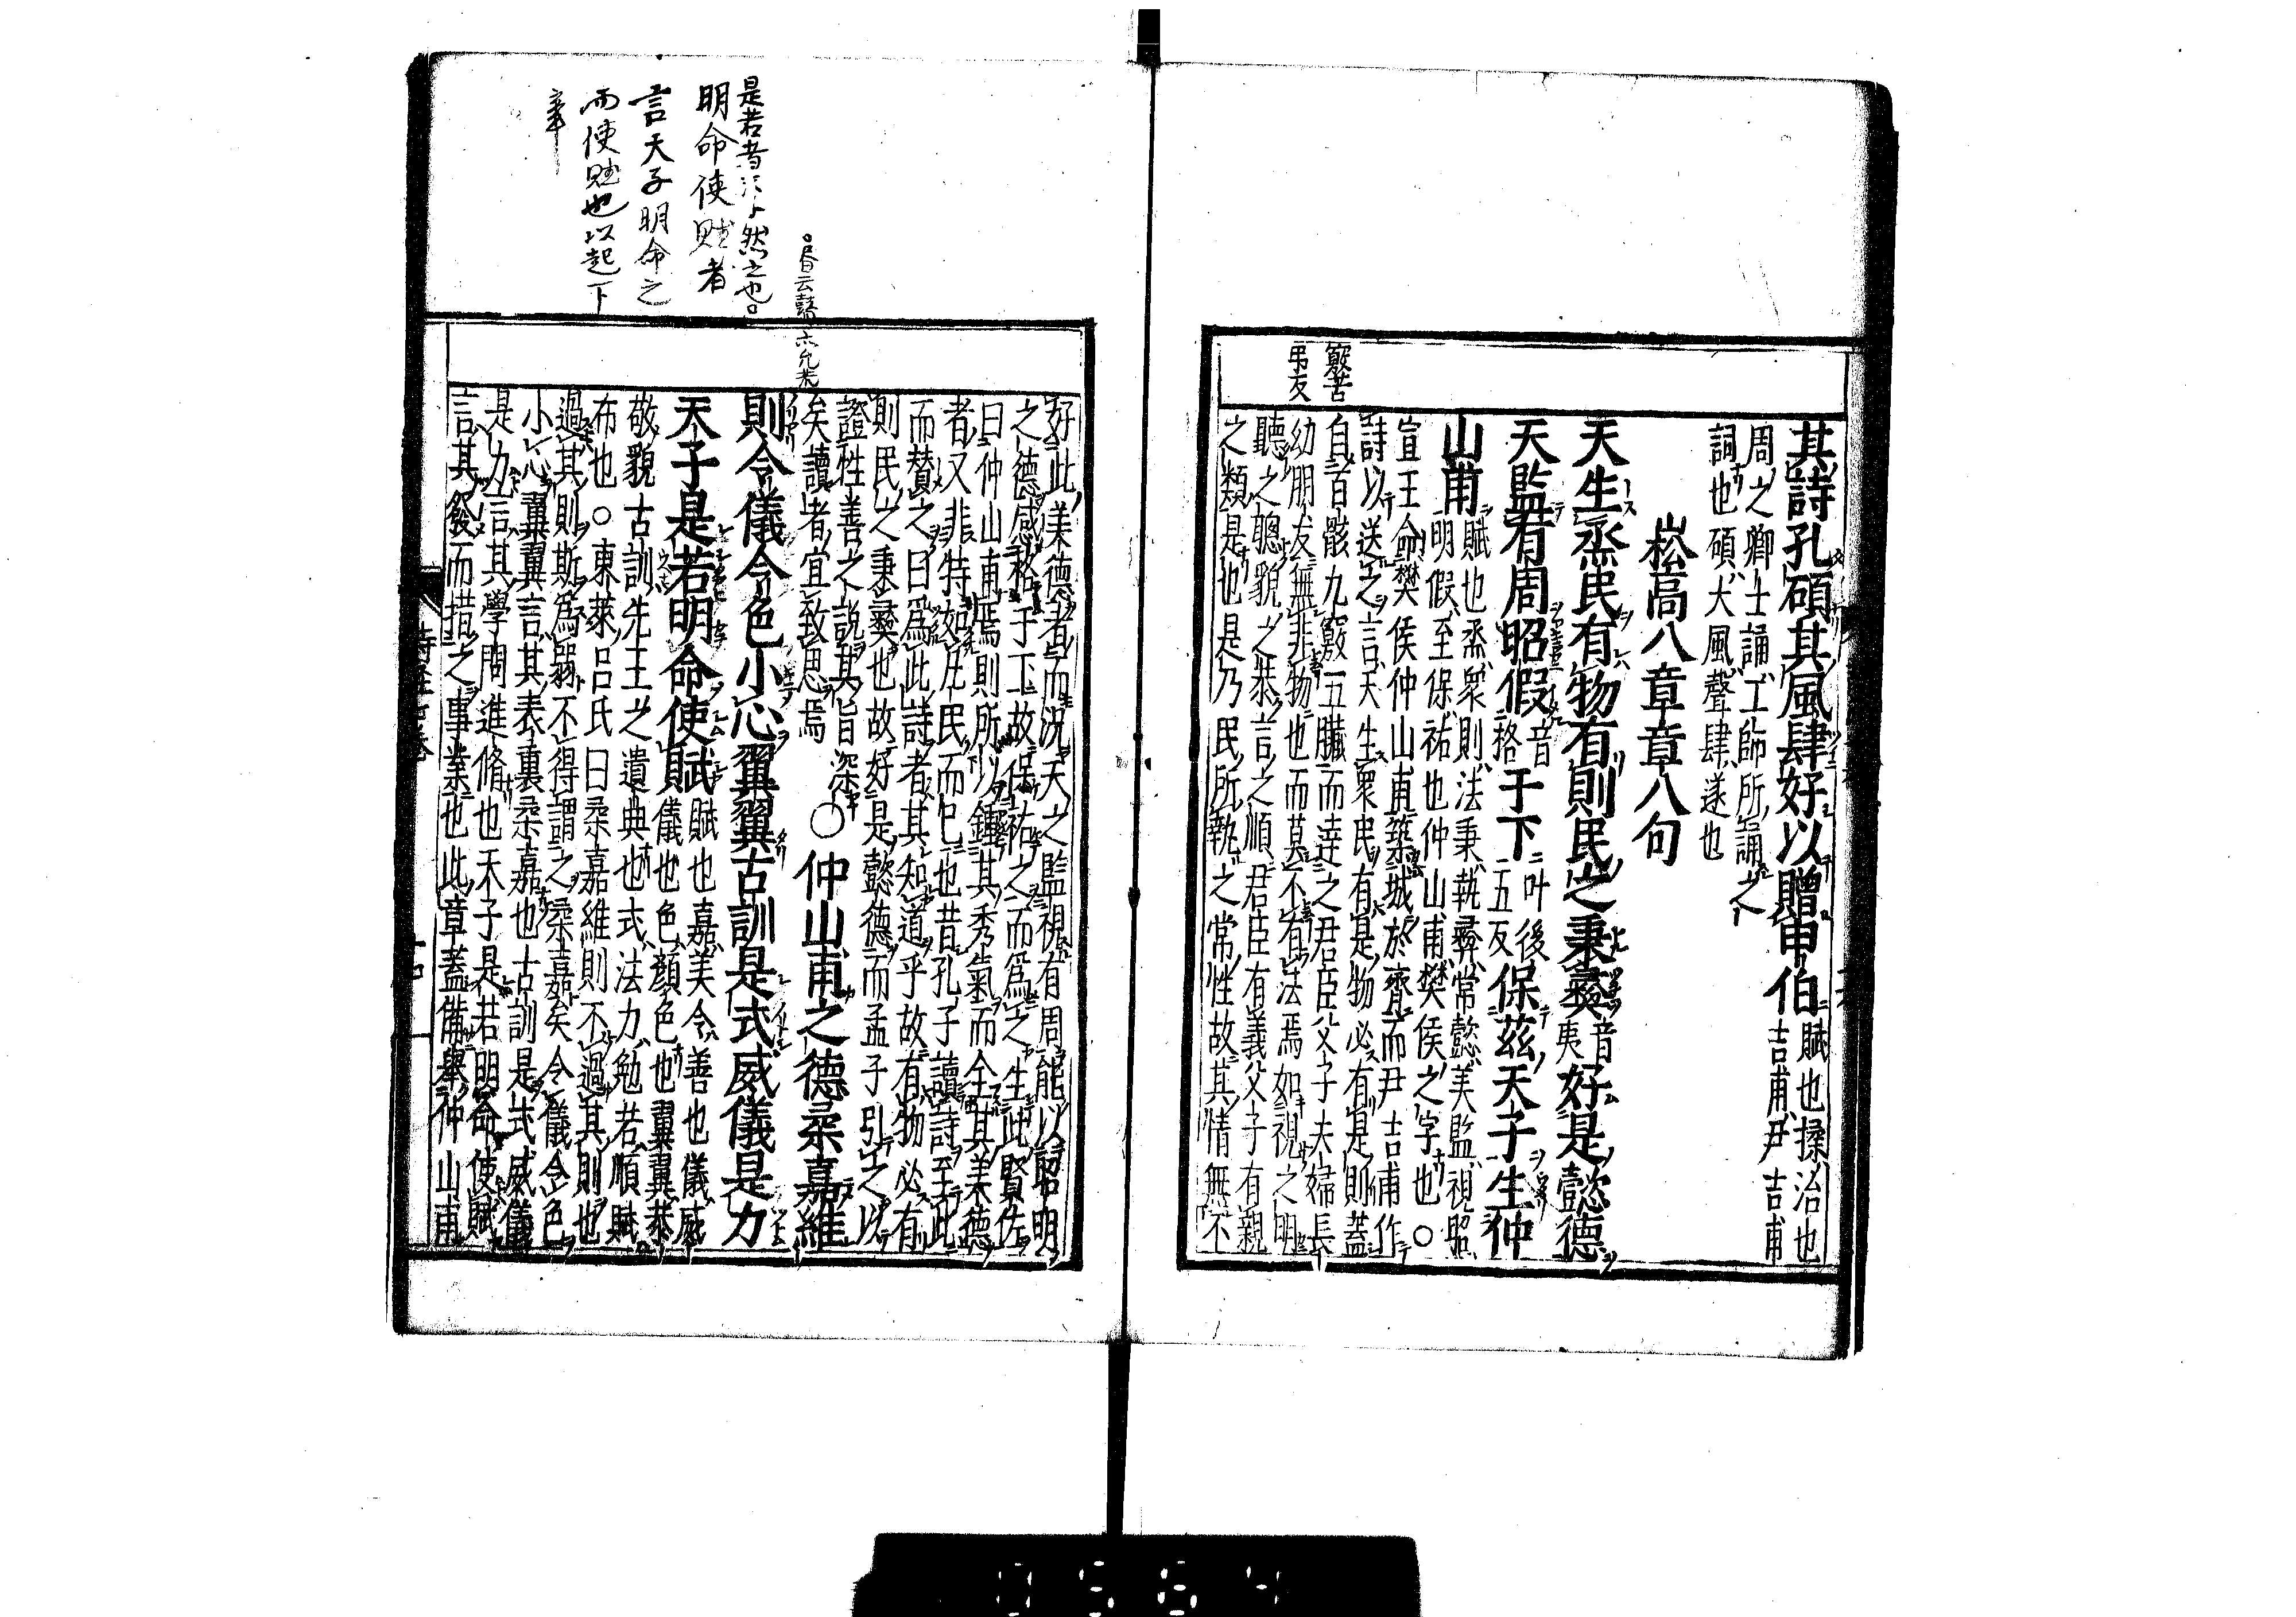 竅苦
弔反
其詩孔碩其風肆好以贈申伯賦也揉治也
吉甫尹吉甫
周之卿士誦工師所誦之
詞也碩大風聲肆遂也
崧高八章章八句
天生烝民有物有則民之秉彝音夷好是懿德
天監有周昭假音格于下叶後五反保茲天子生仲
山甫賦也烝衆則法秉執彝常懿美監視昭
明假至保祐也仲山甫樊侯之字也○
宣王命樊侯仲山甫築城於齊而尹吉甫作
詩以送之言天生衆民有是物必有是則蓋
自百骸九竅五臟而達之君臣父子夫婦長
幼朋友無非物也而莫不有法焉如視之明
聽之聰貌之恭言之順君臣有義父子有親
之類是也是乃民所執之常性故其情無不
好此美德者而況天之監視有周能以昭明
之德感格于下故保祐之而爲之生此賢佐
曰仲山甫焉則所以鍾其秀氣而全其美德
者又非特如凡民而已也昔孔子讀詩至此
而贊之曰爲此詩者其知道乎故有物必有
則民之秉彝也故好是懿德而孟子引之以
證性善之說其旨深
矣讀者宜致思焉○仲山甫之德柔嘉維
則令儀令色小心翼翼古訓是式威儀是力
天子是若明命使賦賦也嘉美令善也儀威
儀也色顏色也翼翼恭
敬貌古訓先王之遺典也式法力勉若順賦
布也○東萊呂氏曰柔嘉維則不過其則也
過其則斯爲弱不得謂之柔嘉矣令儀令色
小心翼翼言其表裏柔嘉也古訓是式威儀
是力言其學問進脩也天子是若明命使賦
言其發而措之事業也此章蓋備舉仲山甫
是若者然之也
明命使賦者
言天子明命之
而使賦也以起下
章